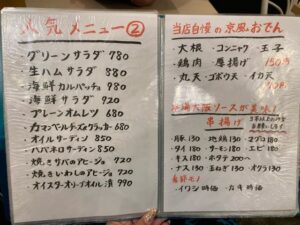 人気メニュー②
・グリーンサラダ 780
・生ハムサラダ 880
・海鮮カルパッチョ 980
・海鮮サラダ 920
・プレーンオムレツ 680
・カマンベールチーズ&クラッカー 680
・オイルサーディン 850
・ハバネロサーディン 850
・焼きサバのアヒージョ 920
・焼きいわしのアヒージョ 920
・オイスターオリーブオイル漬 990
当店自慢の京風おでん
・大根・コンニャク・玉子
・鶏肉・厚揚げ 150円
・丸天・ゴボウ天・イカ天
大阪ソースが美味!
串揚げ
・豚 130 ・地鶏 130 ・マグロ 180
・タイ 180 ・サーモン 180 ・エビ 180
・キス 180 ・ホタテ 200
・ナス 130 ・玉ねぎ 130 ・オクラ 130
・イワシ 時価 ・カキ 時価